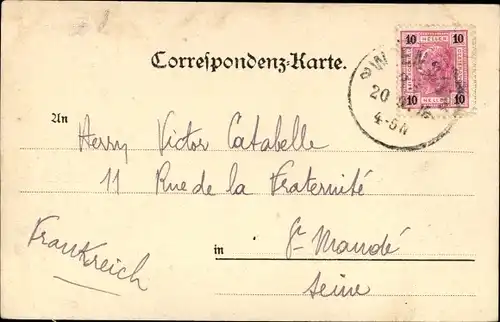 Correspondenz-Karte.
10 HELLER 10
10 HELLER 10
WIEN
20
4-5N
An
Herrn Victor Catabelle
11 Rue de la Fraternité
in St Mandé
Seine
Frankreich